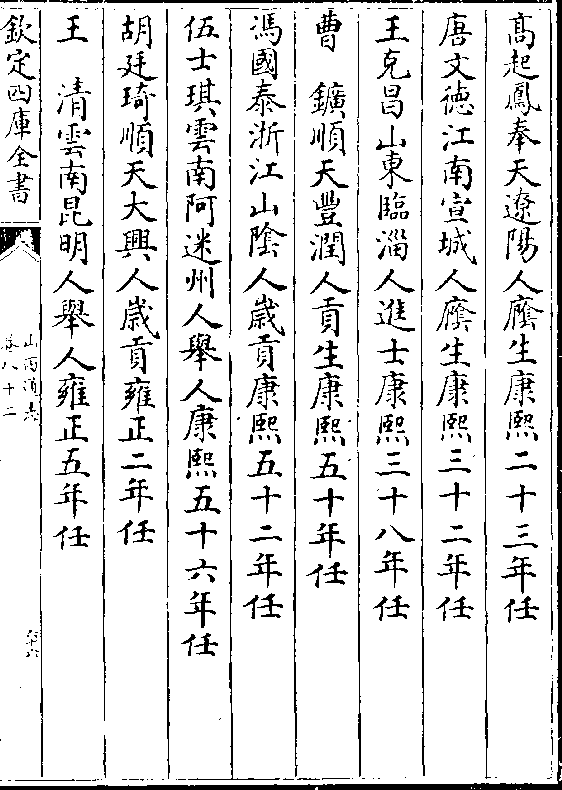 髙起鳳奉天遼陽人廕生康熙二十三年任
唐文徳江南宣城人廕生康熙三十二年任
王克昌山東臨淄人進士康熙三十八年任
曹　鑛順天豐潤人貢生康熙五十年任
馮國泰浙江山隂人歳貢康熙五十二年任
伍士琪雲南阿迷州人舉人康熙五十六年任
胡廷琦順天大興人歳貢雍正二年任
王　清雲南昆明人舉人雍正五年任
欽定四庫全書
山西通志
卷八十二